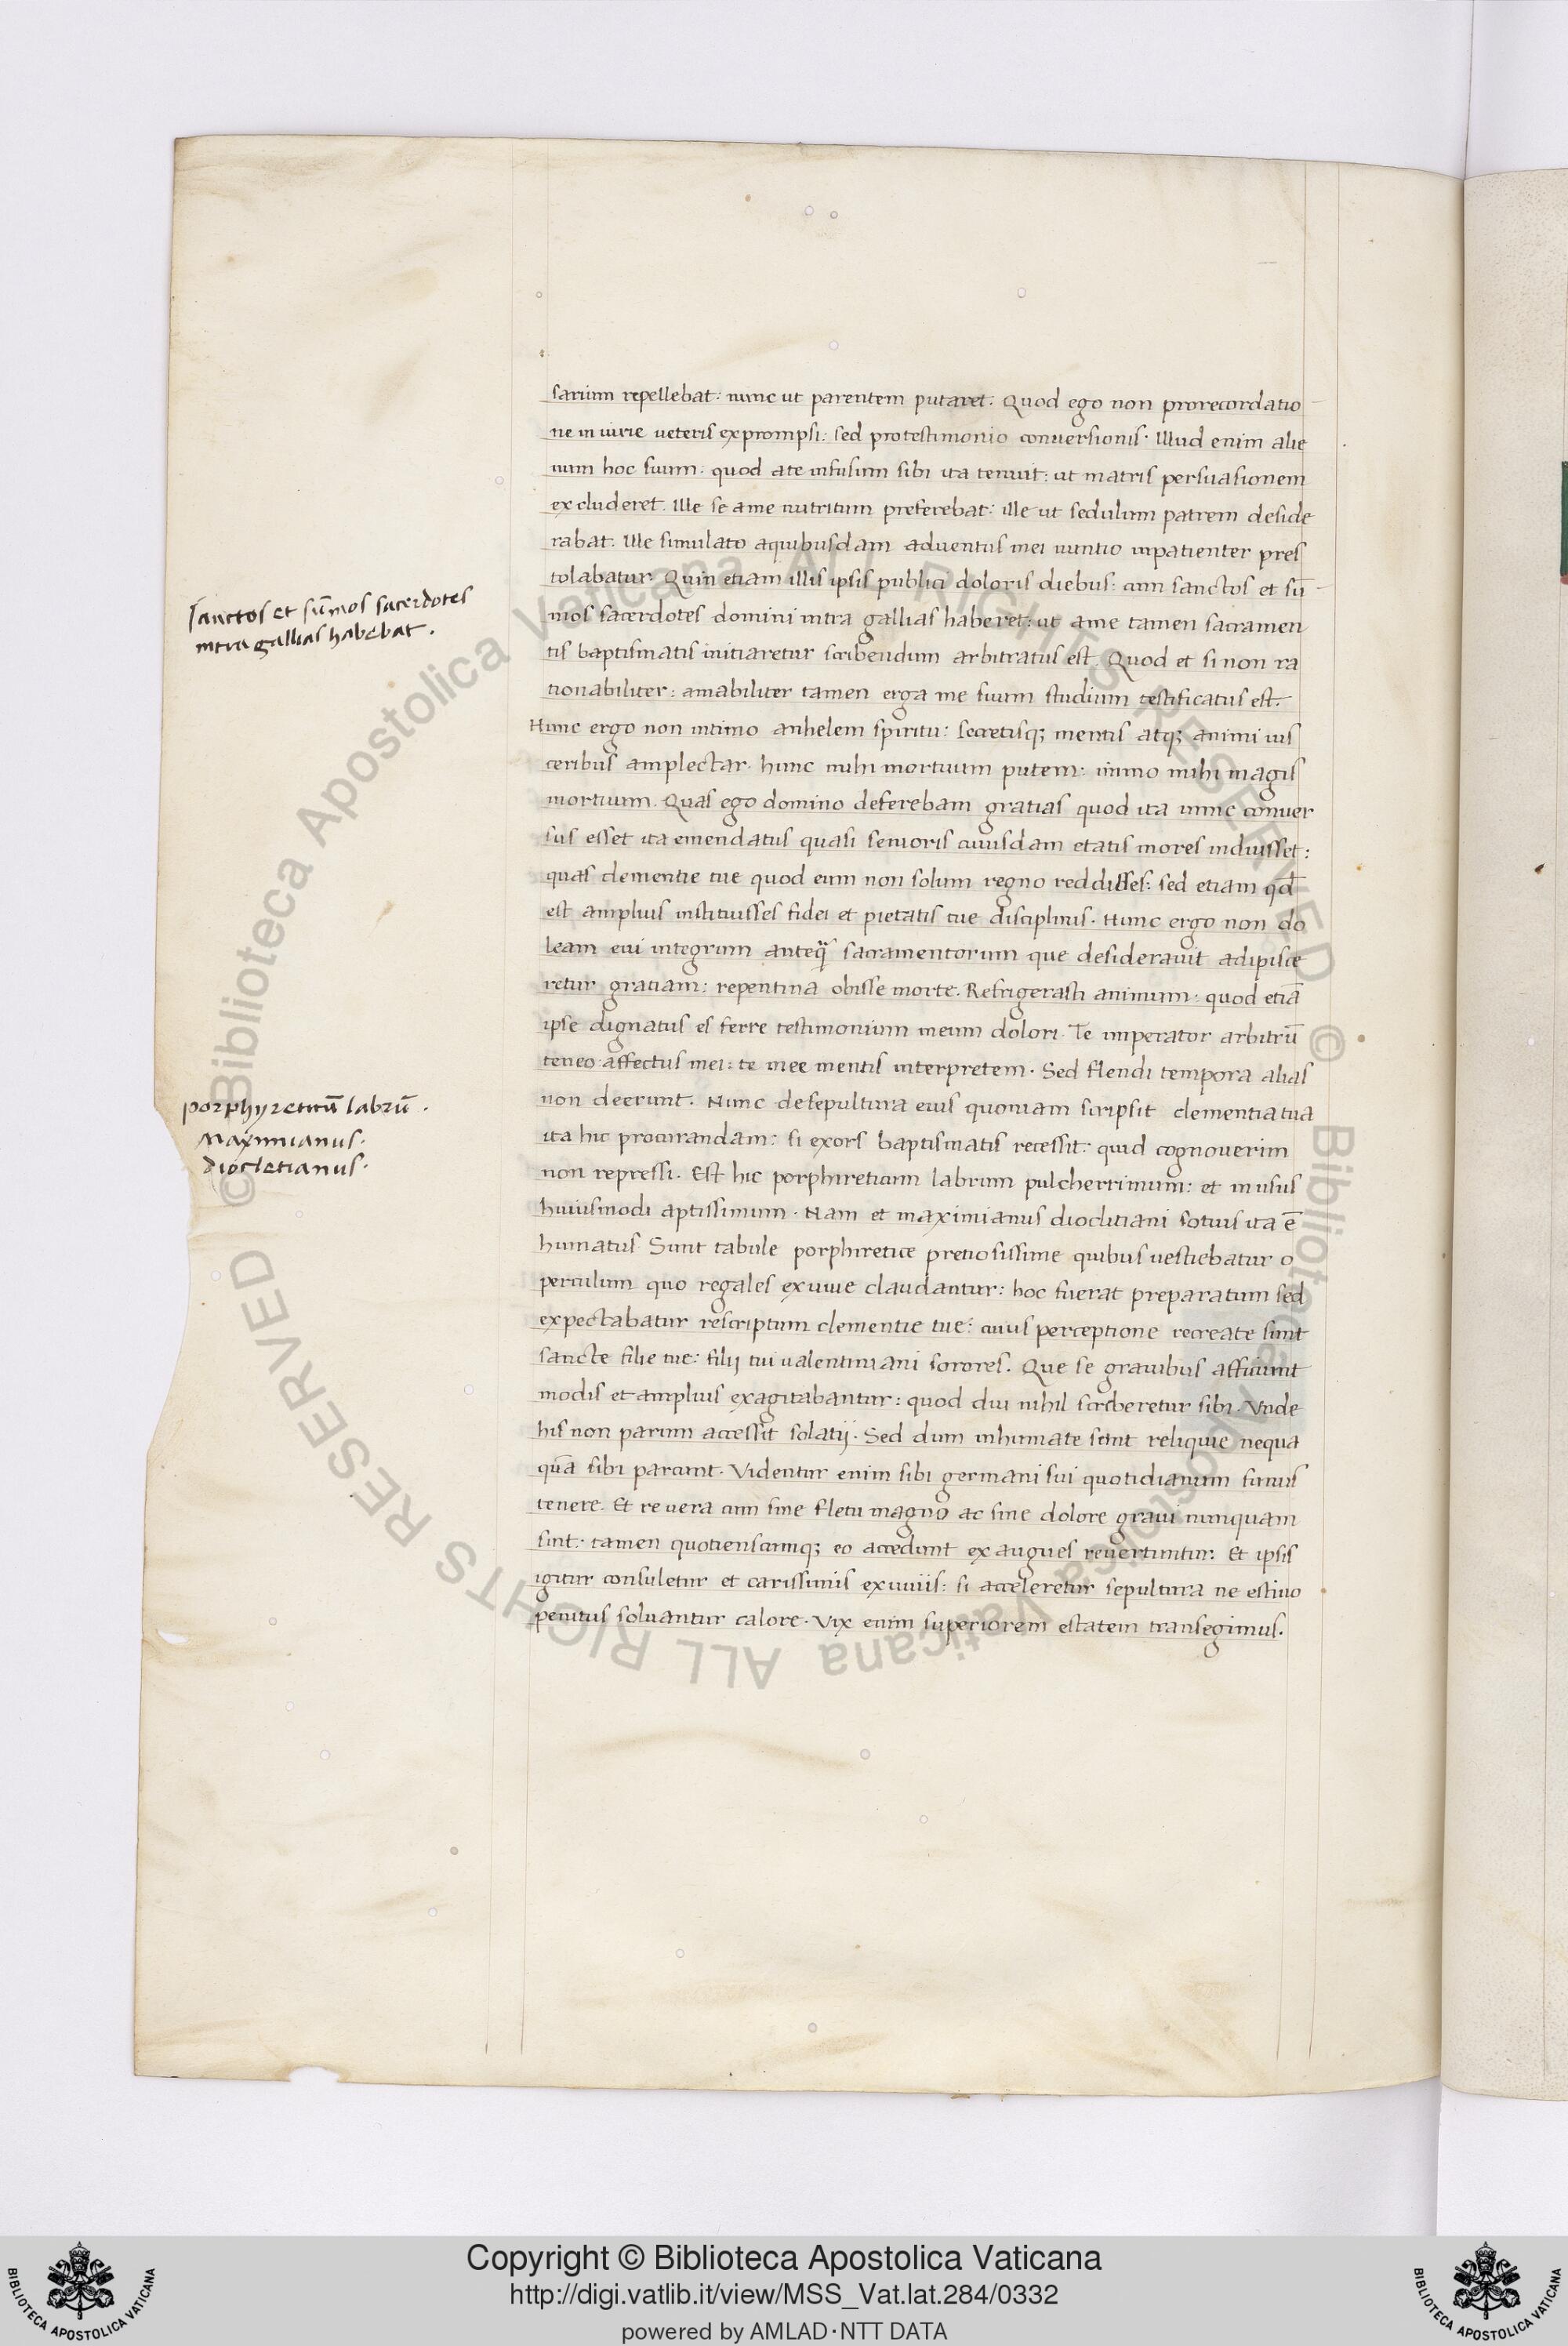 sarium repellebat: nunc ut parentem putaret. Quod ego non prorecordatio
ne iniurie ueteris exprompsi: sed protestimonio conuersionis. Illud enim alie
num hoc suum: quod ate infusum sibi ita tenuit: ut matris persuasionem
excluderet. Ille se ame nutritum preferebat: ille ut sedulum patrem deside
rabat. Ille simulato aquibusdam aduentus mei nuntio inpatienter pres
tolabatur. Quin etiam illis ipsis publici doloris diebus: cum sanctos et sū
mos sacerdotes domini intra gallias haberet: ut ame tamen sacramen
tis baptismatis initiaretur scribendum arbitratus est. Quod et si non ra
tionabiliter: amabiliter tamen erga me suum studium testificatus est.
Hunc ergo non intimo anhelem spiritu: secretisq; mentis atq; animi uis
ceribus amplectar. hunc mihi mortuum putem: immo mihi magis
mortuum. Quas ego domino deferebam gratias quod ita nunc conuer
sus esset ita emendatus quasi senioris cuiusdam etatis mores induisset:
quas clementie tue quod eum non solum regno reddidisses: sed etiam qd̄
est amplius instituisses fidei et pietatis tue disciplinis. Hunc ergo non do
leam eui integrum anteq̄ sacramentorum que desiderauit adipisce
retur gratiam: repentina obisse morte. Refrigerasti animum: quod etiā
ipse dignatus es ferre testimonium meum dolori. Te imperator arbitrū
teneo affectus mei: te mee mentis interpretem. Sed flendi tempora alias
non deerunt. Nunc desepultura eius quoniam scripsit clementia tua
ita hic procurandam: si exors baptismatis recessit: quid cognouerim
non repressi. Est hic porphireticum labrum pulcherrimum: et inusus
huiusmodi aptissimum. Nam et maximianus dioclitiani sotius ita ē
humatus. Sunt tabule porphiretice pretiosissime quibus uestiebatur o
perculum quo regales exuuie claudantur: hoc fuerat preparatum sed
expectabatur rescriptum clementie tue: cuius perceptione recreate sunt
sancte filie tue: filij tui ualentiniani sorores. Que se grauibus afficiunt
modis et amplius exagitabantur: quod diu nihil scriberetur sibi. Unde
his non parum accessit solatij. Sed dum inhumate sunt reliquie nequa
quā sibi parcunt. Videntur enim sibi germani sui quotidianum funus
tenere. Et reuera cum sine fletu magno ac sine dolore graui nunquam
sint: tamen quotienscumq; eo accedunt exangues reuertuntur: Et ipsis
igitur consuletur et carissimis exuuiis: si acceleretur sepultura ne estiuo
penitus soluantur calore. Vix enim superiorem estatem transegimus.
sanctos et sūmos sacerdotes
intra gallias habebat.
porphyreticū labrū.
Maximianus.
Diocletianus.
© Biblioteca Apostolica Vaticana ALL RIGHTS RESERVED © Biblioteca Apostolica Vaticana ALL RIGHTS RESERVED
Copyright © Biblioteca Apostolica Vaticana
http://digi.vatlib.it/view/MSS_Vat.lat.284/0332
powered by AMLAD·NTT DATA
BIBLIOTECA APOSTOLICA VATICANA
BIBLIOTECA APOSTOLICA VATICANA